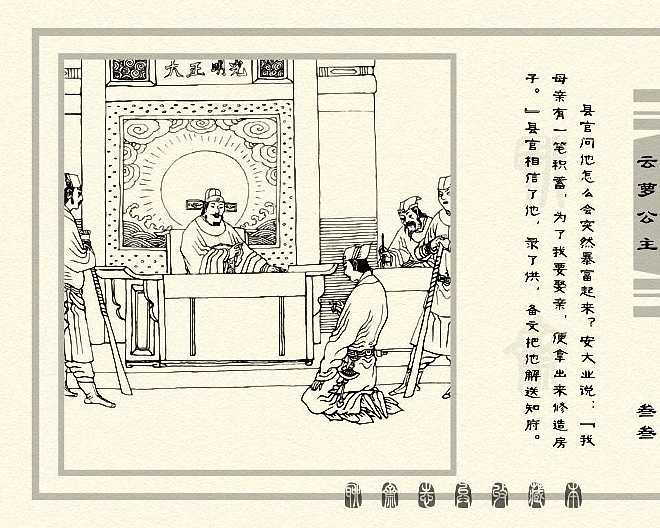 正大光明
县官问他怎么会突然暴富起来？安大业说：『我
母亲有一笔积蓄，为了我要娶亲，便拿出来修造房
子。』县官相信了他，录了供，备文把他解送知府。
云萝公主
叁叁
聊斋志异珍藏本